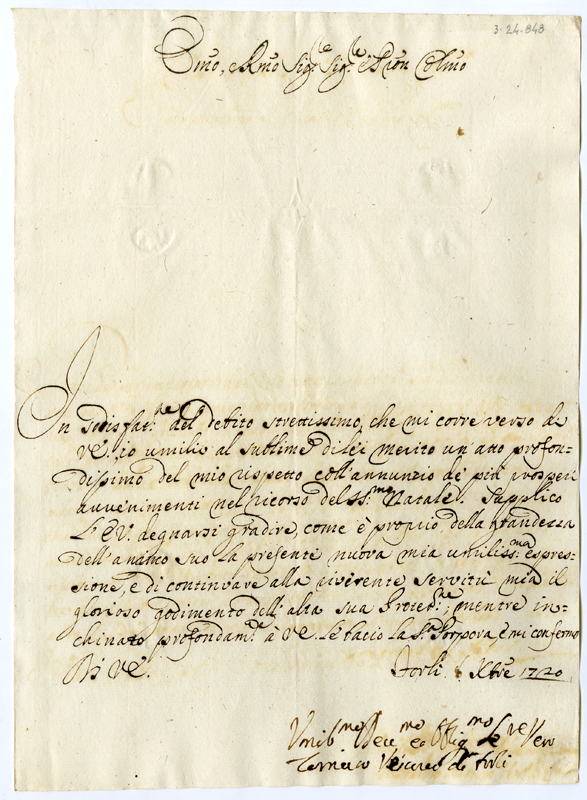 3-24-848
Emo, e Rmo Sig.re Sig.re e Pron Colmo
In sodisfat.ne del debito strettissimo, che mi corre verso di
VE. io umilio al sublime di lei merito un'atto profon=
dissimo del mio rispetto coll'annunzio de più prosperi
avvenimenti nel ricorso del SS.mo Natale. Supplico
L'EV. degnarsi gradire, come è proprio della Grandezza
dell'animo suo la presente nuova mia umiliss.ma espres=
sione, e di continuare alla riverente servitù mia il
glorioso godimento dell'alta sua Protez.ne; mentre in=
chinato profondam.te à VE. le facio la S.ra Porpora, e mi confermo
Di VE.
Forli Xbre 1720
Umil.mo Dev.mo ed Obblig.mo Se.re Vero
Vicario di Forli